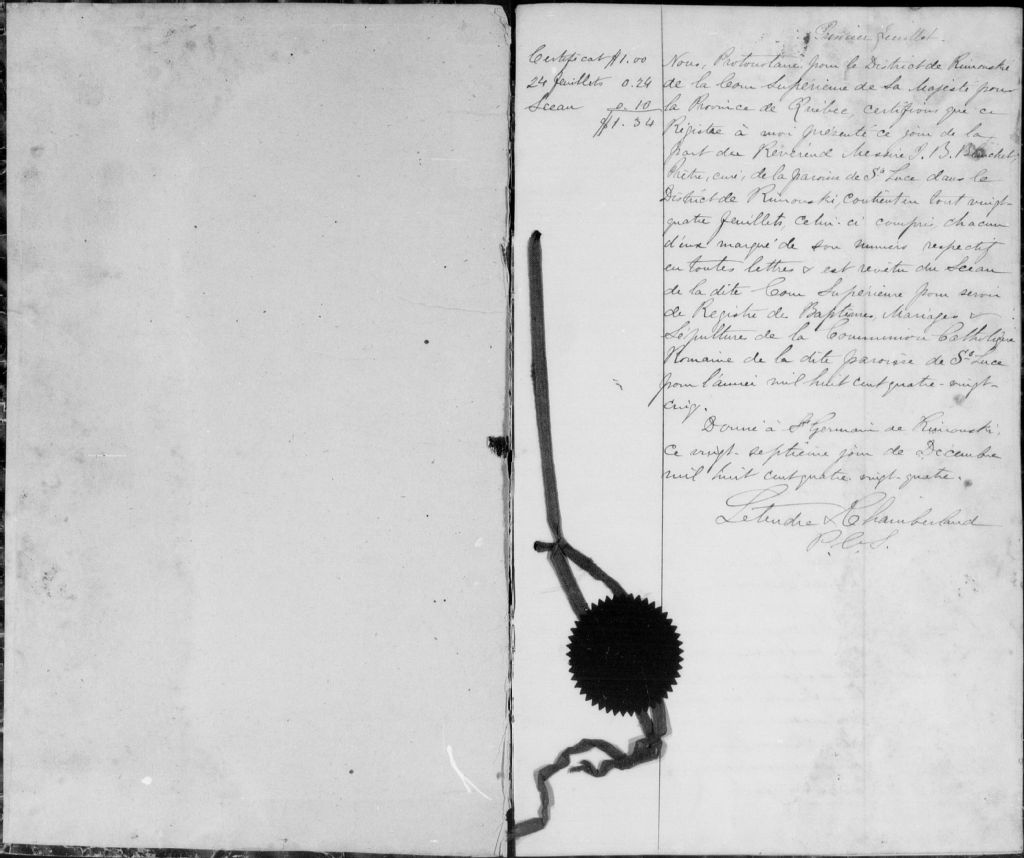 Premier feuillet.
Certificat $1.00
24 feuillets 0.24
Sceau 0.10
$1.34
Nous, Protonotaire pour le District de Rimouski
de la Cour Supérieure de Sa Majesté pour
la Province de Québec, certifions que ce
Régistre à moi présenté ce jour de la
part du Révérend Messire J. B. Blanchet,
Prêtre, curé, de la paroisse de Ste Luce dans le
District de Rimouski, contient en tout vingt-
quatre feuillets, celui-ci compris, chacun
d'eux marqué de son numéro respectif
en toutes lettres & est revêtu du Sceau
de la dite Cour Supérieure pour servir
de Registre de Baptêmes, Mariages &
Sépultures de la Communion Catholique
Romaine de la dite paroisse de Ste Luce
pour l'année mil huit cent quatre-vingt-
cinq.
Donné à St Germain de Rimouski,
ce vingt-septième jour de Décembre
mil huit cent quatre-vingt-quatre.
Letendre & Chamberland
P. C. S.